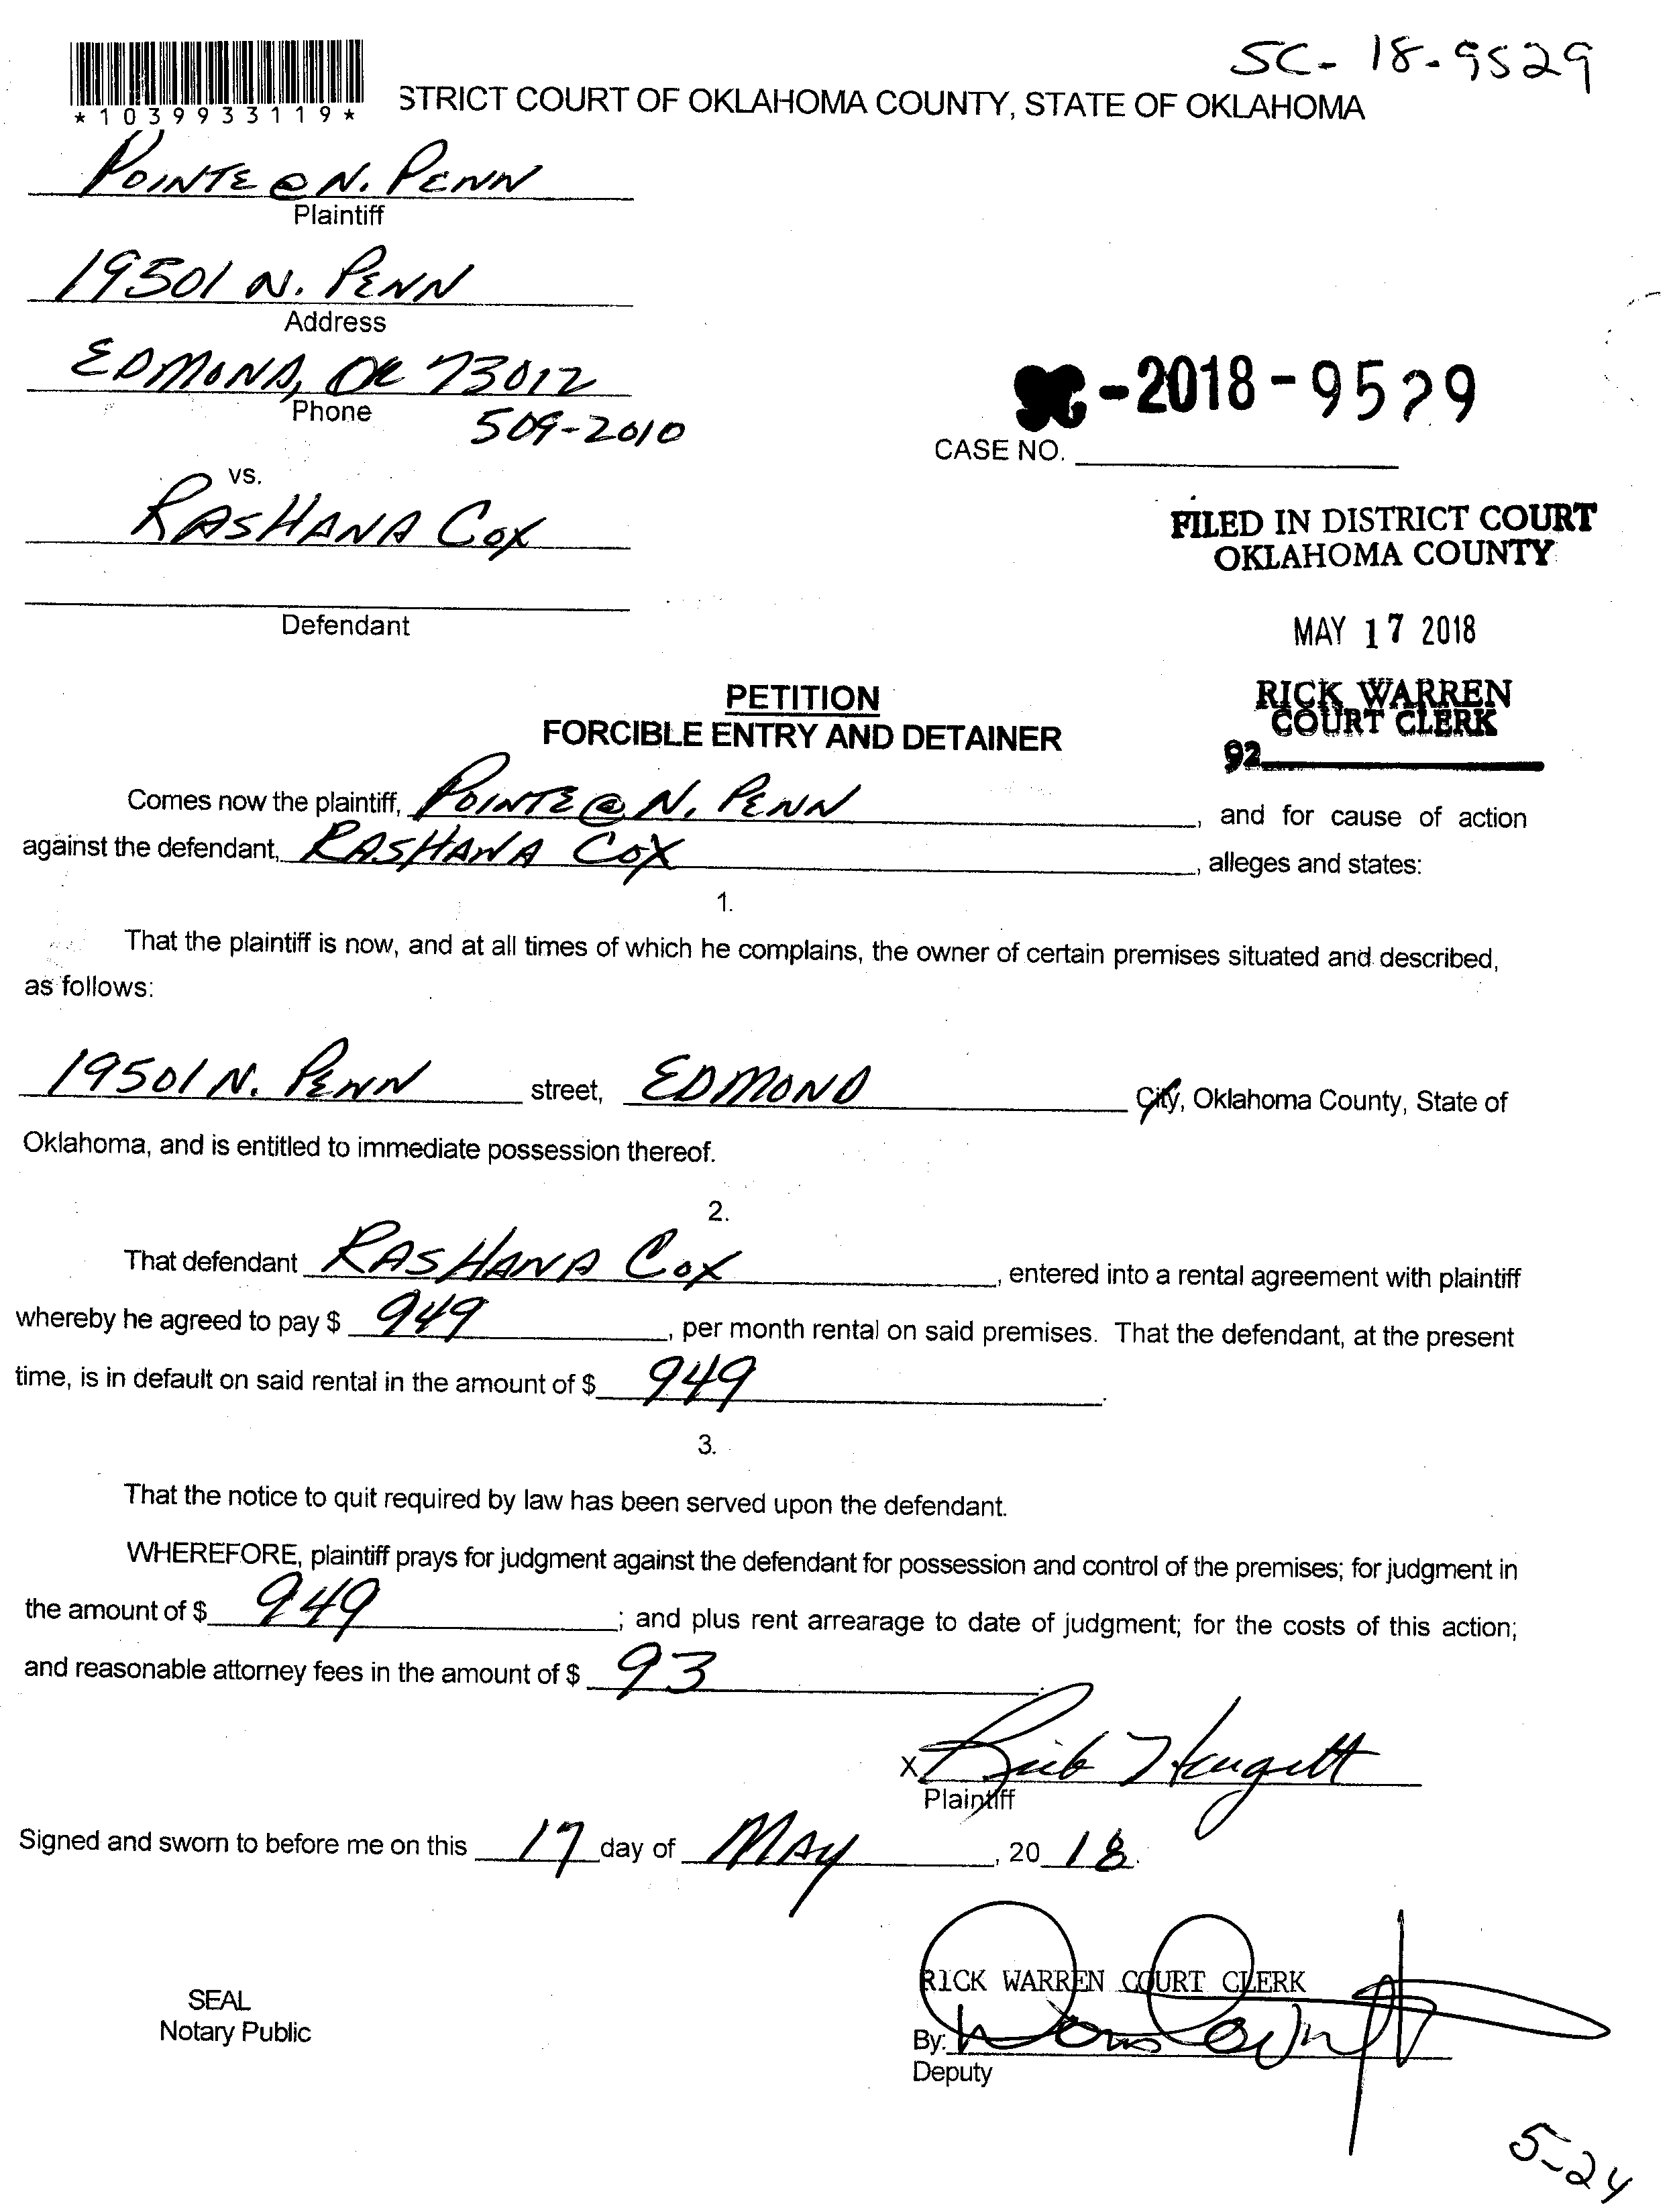 SC- 18-9529
*1039933119*
STRICT COURT OF OKLAHOMA COUNTY, STATE OF OKLAHOMA
POINTE @ N. PENN
Plaintiff
19501 N. PENN
Address
EDMOND, OK 73012
Phone
509-2010
-2018-9529
CASE NO.
vs.
RASHANA COX
FILED IN DISTRICT COURT
OKLAHOMA COUNTY
Defendant
MAY 17 2018
RICK WARREN
COURT CLERK
92
PETITION
FORCIBLE ENTRY AND DETAINER
Comes now the plaintiff, POINTE @ N. PENN, and for cause of action
against the defendant, RASHANA COX, alleges and states:
1.
That the plaintiff is now, and at all times of which he complains, the owner of certain premises situated and described,
as follows:
19501 N. PENN street, EDMOND City, Oklahoma County, State of
Oklahoma, and is entitled to immediate possession thereof.
2.
That defendant RASHANA COX, entered into a rental agreement with plaintiff
whereby he agreed to pay $ 949, per month rental on said premises. That the defendant, at the present
time, is in default on said rental in the amount of $ 949.
3.
That the notice to quit required by law has been served upon the defendant.
WHEREFORE, plaintiff prays for judgment against the defendant for possession and control of the premises; for judgment in
the amount of $ 949; and plus rent arrearage to date of judgment; for the costs of this action;
and reasonable attorney fees in the amount of $ 93.
X
Plaintiff
Signed and sworn to before me on this 17 day of MAY, 20 18.
RICK WARREN COURT CLERK
SEAL
Notary Public
By:
Deputy
5-24